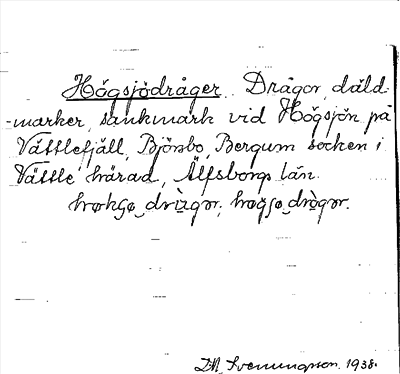 Högsjödråger Drågor, däld-
marker, sankmark vid Högsjön på
Vättlefjäll, Björsbo, Bergum socken i
Vättle härad, Älfsborgs län.
høkʂø drìagər, høgʂø dròger.
Svenungson. 1938.